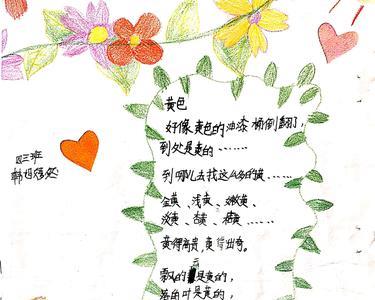 黄色
好像黄色的油漆桶倒翻了,
到处是黄的……
到哪儿去找这么多的黄……
金黄、浅黄、嫩黄、
淡黄、杏黄、……
黄得高贵,黄得出奇。
飘的云是黄的,
落的叶是黄的,
四三班
韩